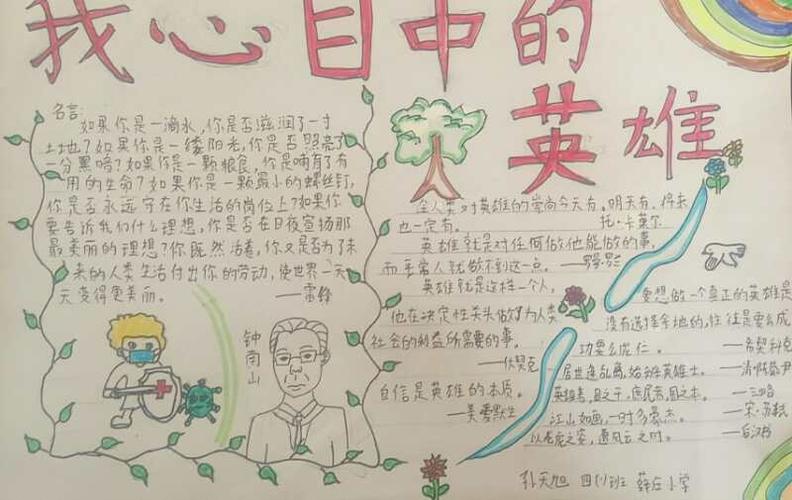 我心目中的
英雄
名言:
如果你是一滴水,你是否滋润了一寸
土地?如果你是一缕阳光,你是否照亮了
一分黑暗?如果你是一颗粮食,你是否哺育了有
用的生命?如果你是一颗最小的螺丝钉,
你是否永远守在你生活的岗位上?如果你
要告诉我们什么理想,你是否在日夜宣扬那
最美丽的理想?你既然活着,你又是否为了未
来的人类生活付出你的劳动,使世界一天
天变得更美丽。
——雷锋
钟南山
全人类对英雄的崇尚今天有,明天有,将来
也一定有。 托·卡莱尔
英雄就是对任何事他能做的事,
而平常人就做不到这一点。 ——罗曼·罗兰
英雄就是这样一个人,
他在决定性关头做了为人类
社会的利益所需要的事。
——伏契克
自信是英雄的本质。
——美 爱默生
要想做一个真正的英雄是
没有选择余地的,往往是要么成
功要么成仁。 ——希契科克
居世逢乱离,始辨英雄士。
英雄者,国之干,庶民者,国之本。 ——三略
江山如画,一时多豪杰。 ——宋·苏轼
以龙虎之姿,遭风云之时。 ——后汉书
孙天旭 四(1)班 薛庄小学